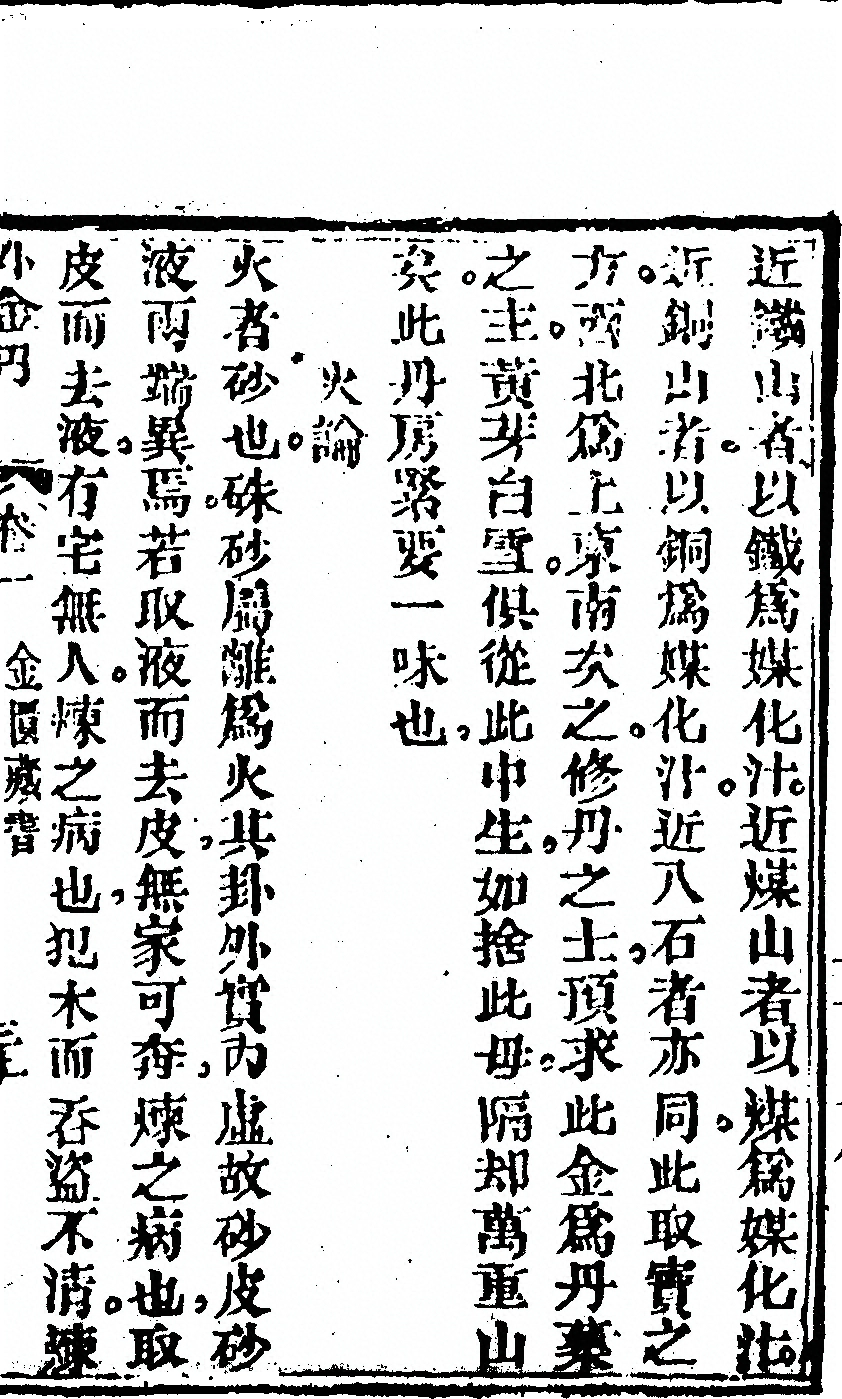 近鐵山者以鐵爲媒化汁。近煤山者以煤爲媒化汁。
近銅山者。以銅爲媒化汁。近八石者亦同。此取寶之
方。西北爲上東南次之。修丹之士，頂求此金爲丹藥
之主。黃芽白雪。俱從此中生，如捨此母。隔却萬重山
矣。此丹房緊要一味也，
火論
火者砂也。硃砂屬離爲火其卦外實內虛故砂皮砂
液兩端異焉。若取液而去皮，無家可奔，煉之病也，取
皮而去液，有宅無人。煉之病也，犯木而吞盜不清。煉
外金丹 卷一 金匱藏書